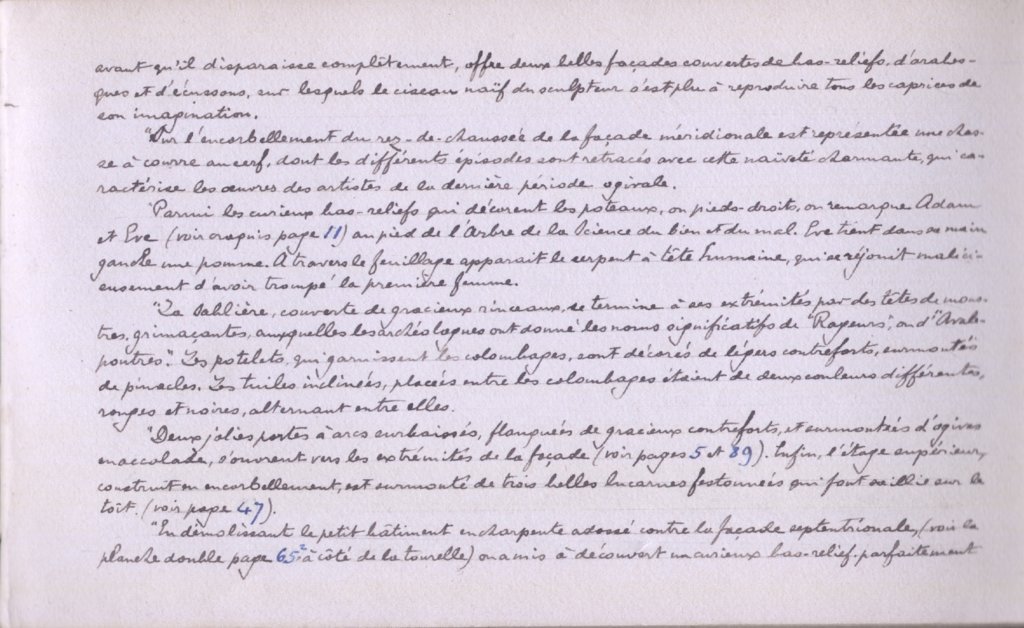 avant qu'il disparaisse complètement, offre deux belles façades couvertes de bas-reliefs, d'arabes-
ques et d'écussons, sur lesquels le ciseau naïf du sculpteur s'est plu à reproduire tous les caprices de
son imagination.
"Sur l'encorbellement du rez-de-chaussée de la façade méridionale est représentée une chas-
se à courre au cerf, dont les différents épisodes sont retracés avec cette naïveté charmante, qui ca-
ractérise les œuvres des artistes de la dernière période ogivale.
"Parmi les curieux bas-reliefs qui décorent les poteaux, ou pieds-droits, on remarque Adam
et Eve (voir croquis page 11) au pied de l'Arbre de la Science du bien et du mal. Eve tient dans sa main
gauche une pomme. A travers le feuillage apparait le serpent à tête humaine, qui se réjouit malici-
eusement d'avoir trompé la première femme.
"La Sablière, couverte de gracieux rinceaux, se termine à ses extrémités par des têtes de mons-
tres, grimaçantes, auxquelles les archéologues ont donné les noms significatifs de "Rageurs", ou d'"Avale-
poutres". Les potelets, qui garnissent les colombages, sont décorés de légers contreforts, surmontés
de pinacles. Les tuiles inclinées, placées entre les colombages étaient de deux couleurs différentes,
rouges et noires, alternant entre elles.
"Deux jolies portes à arcs surbaissés, flanquées de gracieux contreforts, et surmontées d'ogives
en accolade, s'ouvrent vers les extrémités de la façade (voir pages 5 et 89). Enfin, l'étage supérieur,
construit en encorbellement, est surmonté de trois belles lucarnes festonnées qui font saillie sur le
toit. (voir page 47).
"En démolissant le petit bâtiment en charpente adossé contre la façade septentrionale, (voir la
planche double page 65² à côté de la tourelle) on a mis à découvert un curieux bas-relief parfaitement